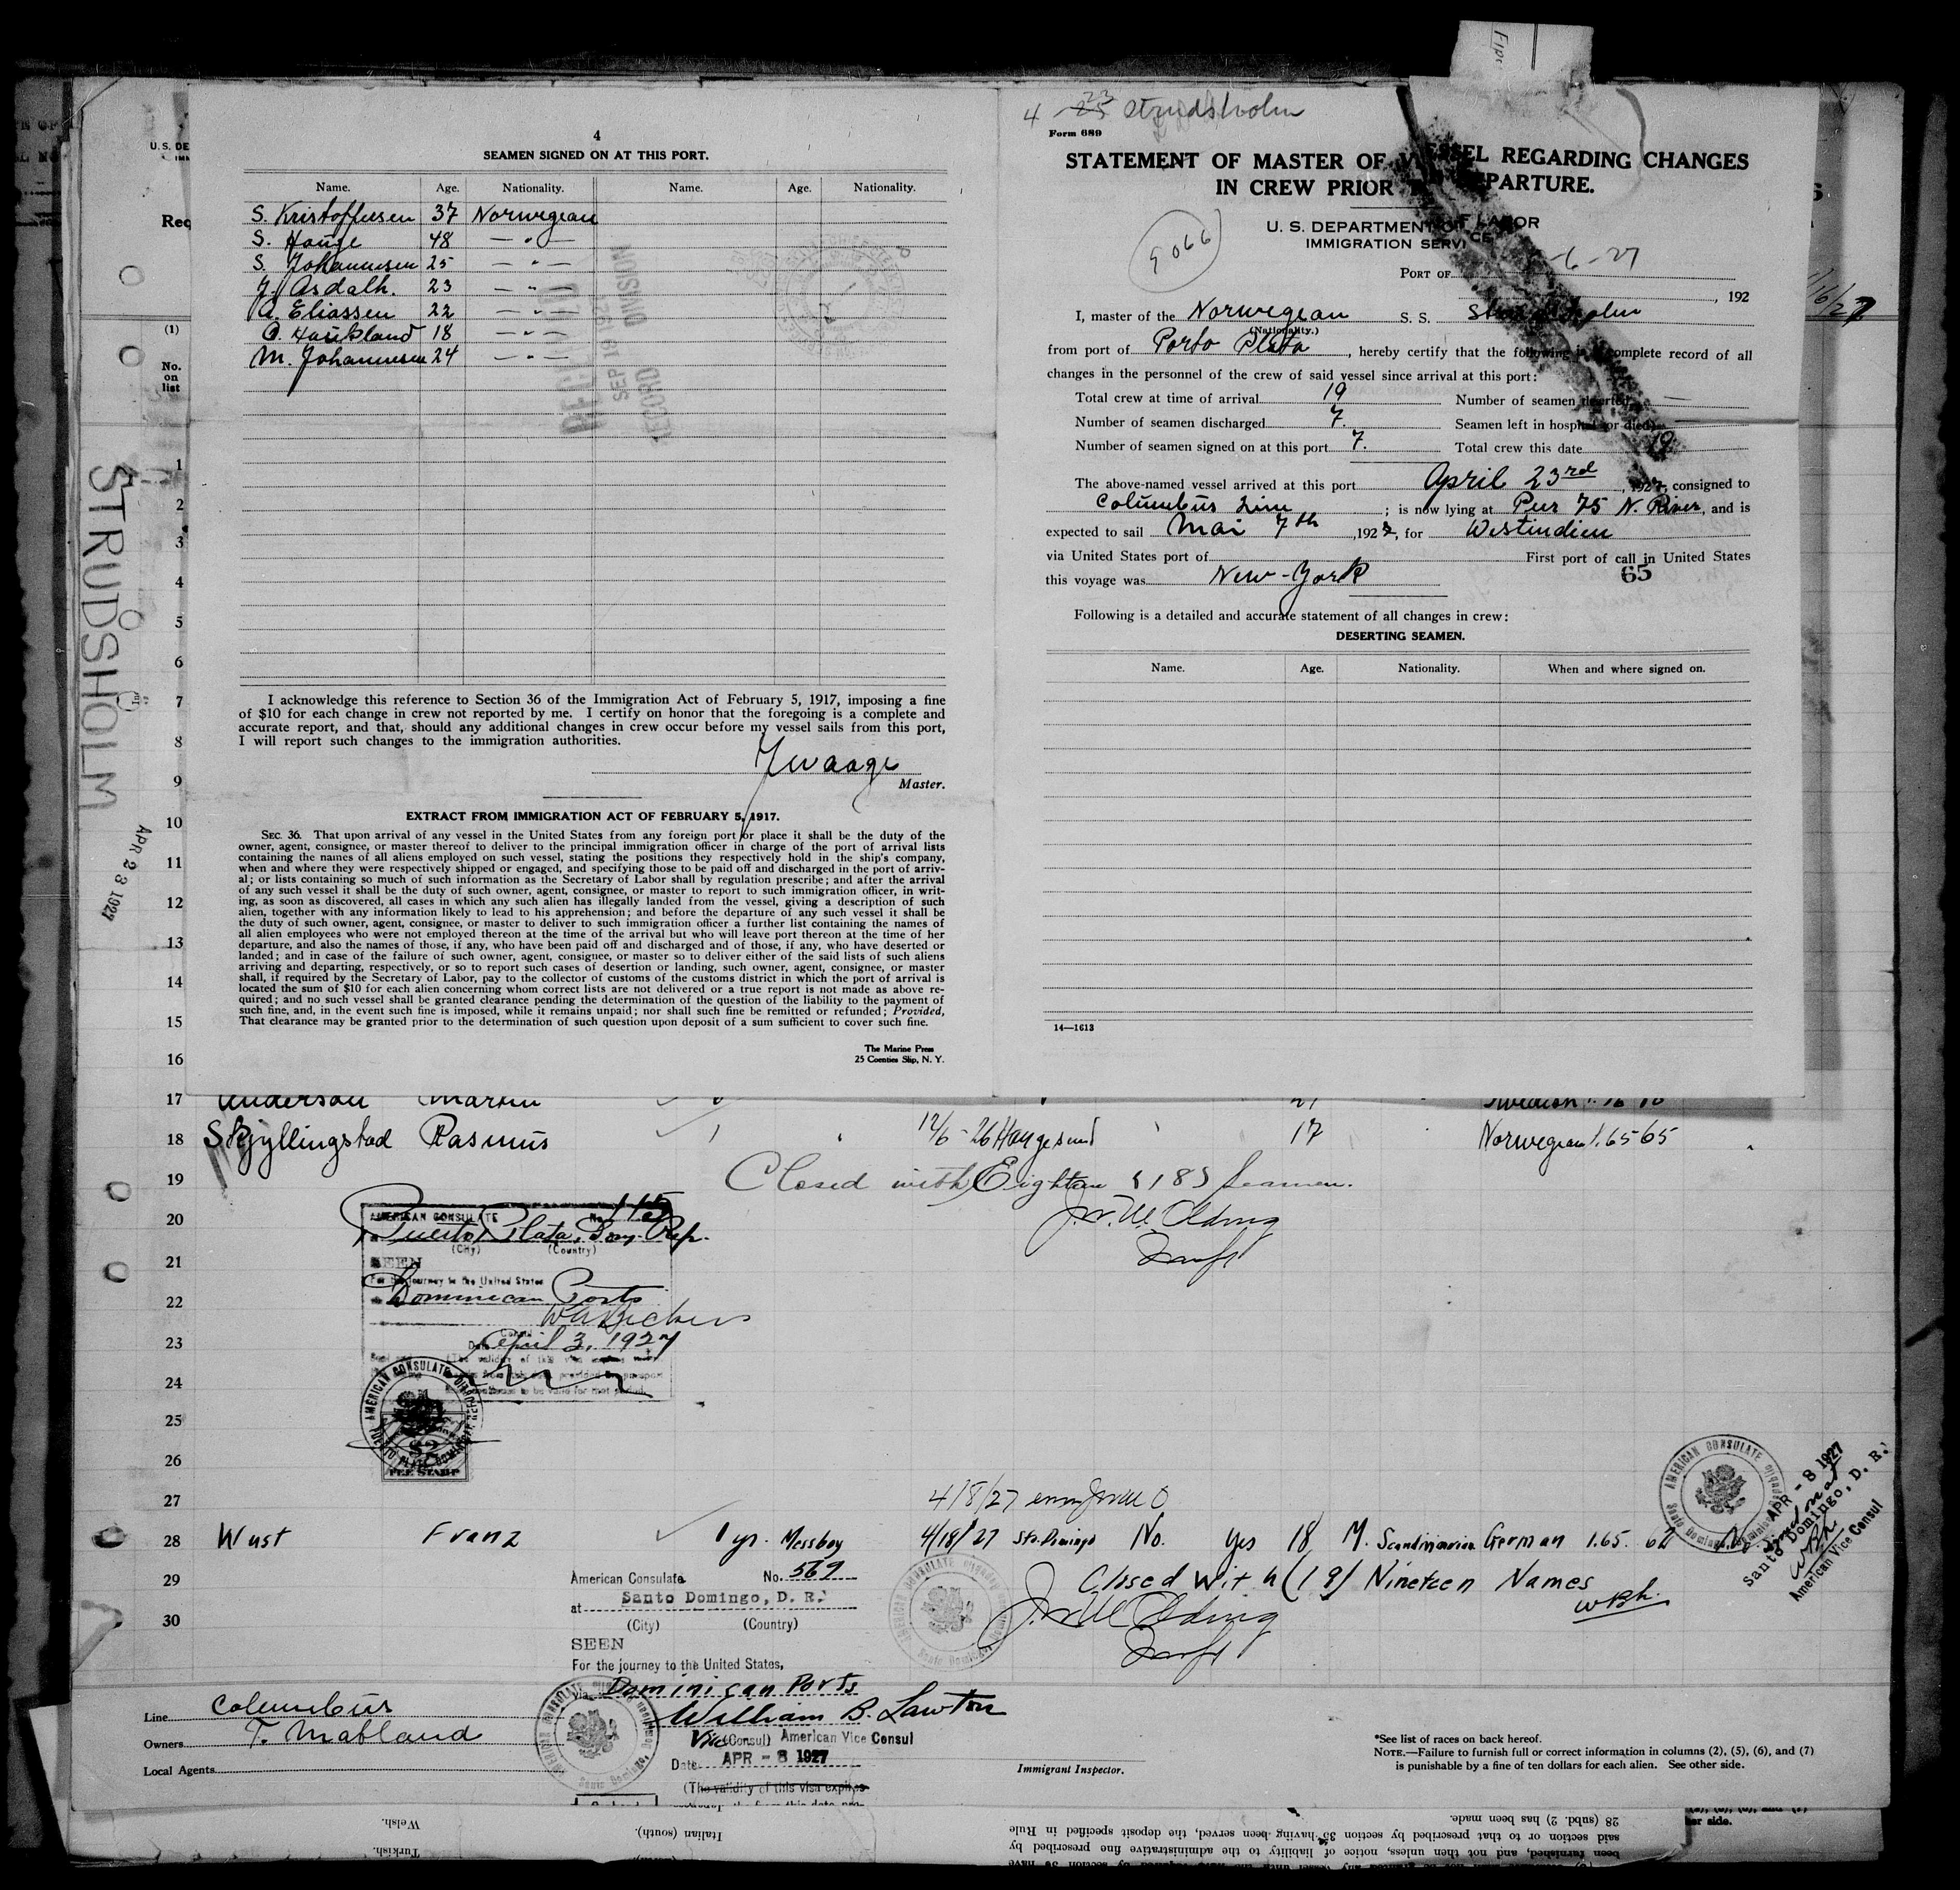 4
SEAMEN SIGNED ON AT THIS PORT.
Name. Age. Nationality. Name. Age. Nationality.
S. Kristoffersen 37 Norwegean
S. Hauge 48 — " —
S. Johannesen 25 — " —
Asdalh. 23 — " —
A. Eliassen 22 — " —
O. Haukland 18 — " —
M. Johannesen 24 — " —
I acknowledge this reference to Section 36 of the Immigration Act of February 5, 1917, imposing a fine
of $10 for each change in crew not reported by me. I certify on honor that the foregoing is a complete and
accurate report, and that, should any additional changes in crew occur before my vessel sails from this port,
I will report such changes to the immigration authorities.
Master.
EXTRACT FROM IMMIGRATION ACT OF FEBRUARY 5, 1917.
SEC. 36. That upon arrival of any vessel in the United States from any foreign port or place it shall be the duty of the
owner, agent, consignee, or master thereof to deliver to the principal immigration officer in charge of the port of arrival lists
containing the names of all aliens employed on such vessel, stating the positions they respectively hold in the ship's company,
when and where they were respectively shipped or engaged, and specifying those to be paid off and discharged in the port of arriv-
al; or lists containing so much of such information as the Secretary of Labor shall by regulation prescribe; and after the arrival
of any such vessel it shall be the duty of such owner, agent, consignee, or master to report to such immigration officer, in writ-
ing, as soon as discovered, all cases in which any such alien has illegally landed from the vessel, giving a description of such
alien, together with any information likely to lead to his apprehension; and before the departure of any such vessel it shall be
the duty of such owner, agent, consignee, or master to deliver to such immigration officer a further list containing the names of
all alien employees who were not employed thereon at the time of the arrival but who will leave port thereon at the time of her
departure, and also the names of those, if any, who have been paid off and discharged and of those, if any, who have deserted or
landed; and in case of the failure of such owner, agent, consignee, or master so to deliver either of the said lists of such aliens
arriving and departing, respectively, or so to report such cases of desertion or landing, such owner, agent, consignee, or master
shall, if required by the Secretary of Labor, pay to the collector of customs of the customs district in which the port of arrival is
located the sum of $10 for each alien concerning whom correct lists are not delivered or a true report is not made as above re-
quired; and no such vessel shall be granted clearance pending the determination of the question of the liability to the payment of
such fine, and, in the event such fine is imposed, while it remains unpaid; nor shall such fine be remitted or refunded; Provided,
That clearance may be granted prior to the determination of such question upon deposit of a sum sufficient to cover such fine.
The Marine Press
25 Coenties Slip, N. Y.
4 23 Strudsholm
Form 689
STATEMENT OF MASTER OF VESSEL REGARDING CHANGES
IN CREW PRIOR TO DEPARTURE.
U. S. DEPARTMENT OF LABOR
IMMIGRATION SERVICE
9066
PORT OF -6-27
, 192
I, master of the Norwegean S. S. Strudsholm
(Nationality.)
from port of Porto Plata, hereby certify that the following is a complete record of all
changes in the personnel of the crew of said vessel since arrival at this port:
Total crew at time of arrival 19 Number of seamen deserted —
Number of seamen discharged 7. Seamen left in hospital (or died)
Number of seamen signed on at this port 7. Total crew this date 19
The above-named vessel arrived at this port April 23rd, 1927, consigned to
Columbus Line; is now lying at Pier 75 N. River, and is
expected to sail Mai 7th, 1927, for Westindien
via United States port of First port of call in United States
this voyage was New-York
65
Following is a detailed and accurate statement of all changes in crew:
DESERTING SEAMEN.
Name. Age. Nationality. When and where signed on.
14—1613
STRUDSHOLM
APR 23 1927
U. S. DE
Req
(1)
No. on list
1
2
3
4
5
6
7
8
9
10
11
12
13
14
15
16
17 Anderson Martin 21 Swedish
18 Skjyllingstad Rasmus 1 12/6-26 Haugesund 17 Norwegean 1.65 65
19 Closed with Eighteen (18) Seamen.
20
21
22
23
24
25
26
27
AMERICAN CONSULATE No. 115
Puerto Plata, Dom. Rep.
(City) (Country)
SEEN
For the journey to the United States
Dominican Ports
April 3, 1927
FEE STAMP
4/8/27
28 Wust Franz 1 yr. Messboy 4/18/27 Sto. Domingo No. Yes 18 M. Scandinavian German 1.65. 62
29 Closed With (19) Nineteen Names
30
WBL
American Consulate No. 569
at Santo Domingo, D. R.
(City) (Country)
SEEN
For the journey to the United States,
via Dominican Ports
William B. Lawton
Vice (Consul) American Vice Consul
Date APR - 8 1927
(The validity of this visa expires
AMERICAN CONSULATE
APR - 8 1927
Santo Domingo, D. R.
American Vice Consul
Line Columbus
Owners T. Matland
Local Agents
Immigrant Inspector.
*See list of races on back hereof.
NOTE.—Failure to furnish full or correct information in columns (2), (5), (6), and (7)
is punishable by a fine of ten dollars for each alien. See other side.
Welsh.
Turkish.
Italian (south).
28 (subd. 2) has been made.
said section or to that prescribed by section 35 having been served, the deposit specified in Rule
been furnished, and not then unless, notice of liability to the administrative fine prescribed by